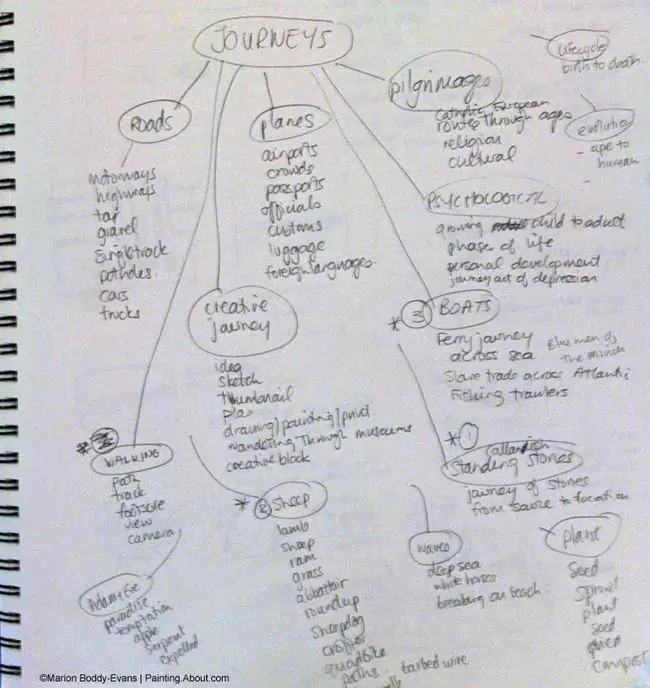 JOURNEYS
Roads
motorways
highways
tar
gravel
singletrack
potholes
cars
trucks
planes
airports
crowds
passports
officials
customs
luggage
foreign languages.
pilgrimages
catholic, European
routes through ages
religion
cultural
lifecycle
birth to death.
evolution
- ape to
- human
PSYCHOLOGICAL
growing child to adult
phase of life
personal development
journey out of depression
creative
journey
idea
sketch
thumbnail
plan
drawing/painting/print
wandering through museums
creative block
* 3 BOATS
Ferry journey
across sea Blue men of
the Minch
Slave trade across Atlantic
Fishing trawlers
*
WALKING
path
track
footsore
view
camera
* 1
Callanish
Standing Stones
journey of stones
from source to location
* 2 Sheep
lamb
sheep
ram
grass
abbattoir
roundup
sheepdog
crofter
quadbike
paths barbed wire
Adam+Eve
paradise
temptation
apple
serpent
expelled
waves
deep sea
white horses
breaking on beach
plant
Seed
Sprout
plant
seed
compost
©Marion Boddy-Evans | Painting.About.com